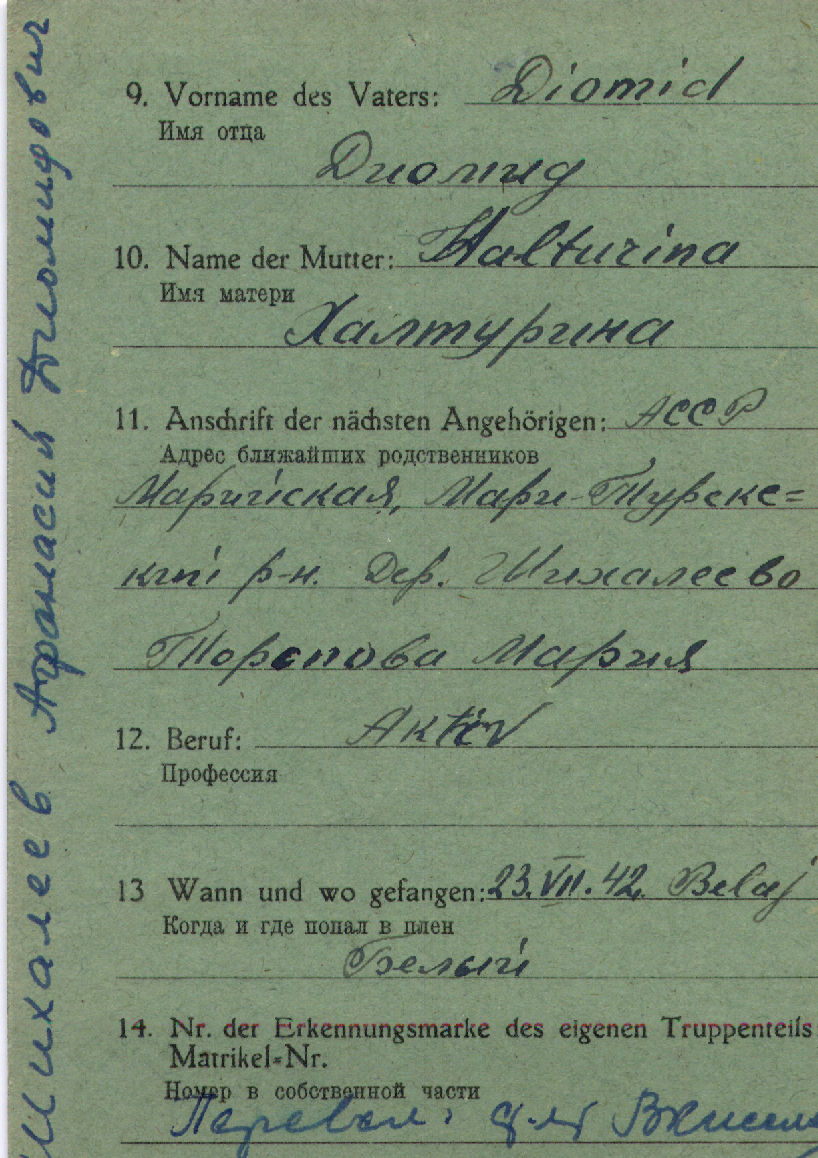 9. Vorname des Vaters: Diomid
Имя отца
Диомид
10. Name der Mutter: Halturina
Имя матери
Халтурина
11. Anschrift der nächsten Angehörigen: АССР
Адрес ближайших родственников
Марийская, Мари-Турекс=
кий р-н. Дер. Шихалеево
Торопова Мария
12. Beruf: Aktiv
Профессия
13 Wann und wo gefangen: 23.VII.42. Belaj
Когда и где попал в плен
Белый
14. Nr. der Erkennungsmarke des eigenen Truppenteils
Matrikel-Nr.
Номер в собственной части
Перевел:
Шихалеев Афанасий Диомидович